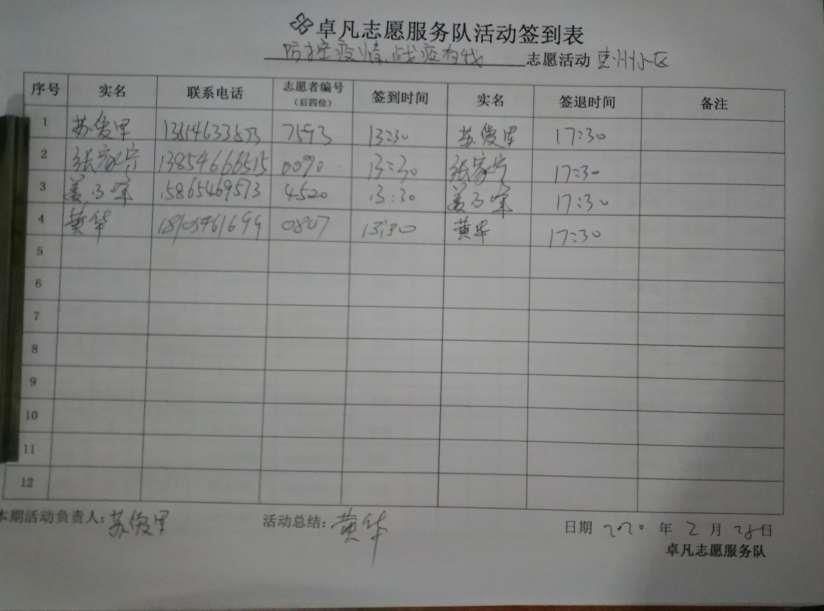 卓凡志愿服务队活动签到表
防控疫情,战疫有我 志愿活动 惠州小区
序号 实名 联系电话 志愿者编号(后四位) 签到时间 实名 签退时间 备注
1 苏俊男 7593 13:30 苏俊男 17:30
2 张家宁 13854666515 0090 13:30 张家宁 17:30
3 姜 15865469513 4520 13:30 姜 17:30
4 黄华 13:30 黄华 17:30
5
6
7
8
9
10
11
12
本期活动负责人:苏俊男 活动总结:黄华 日期 2020 年 2 月 28 日
卓凡志愿服务队